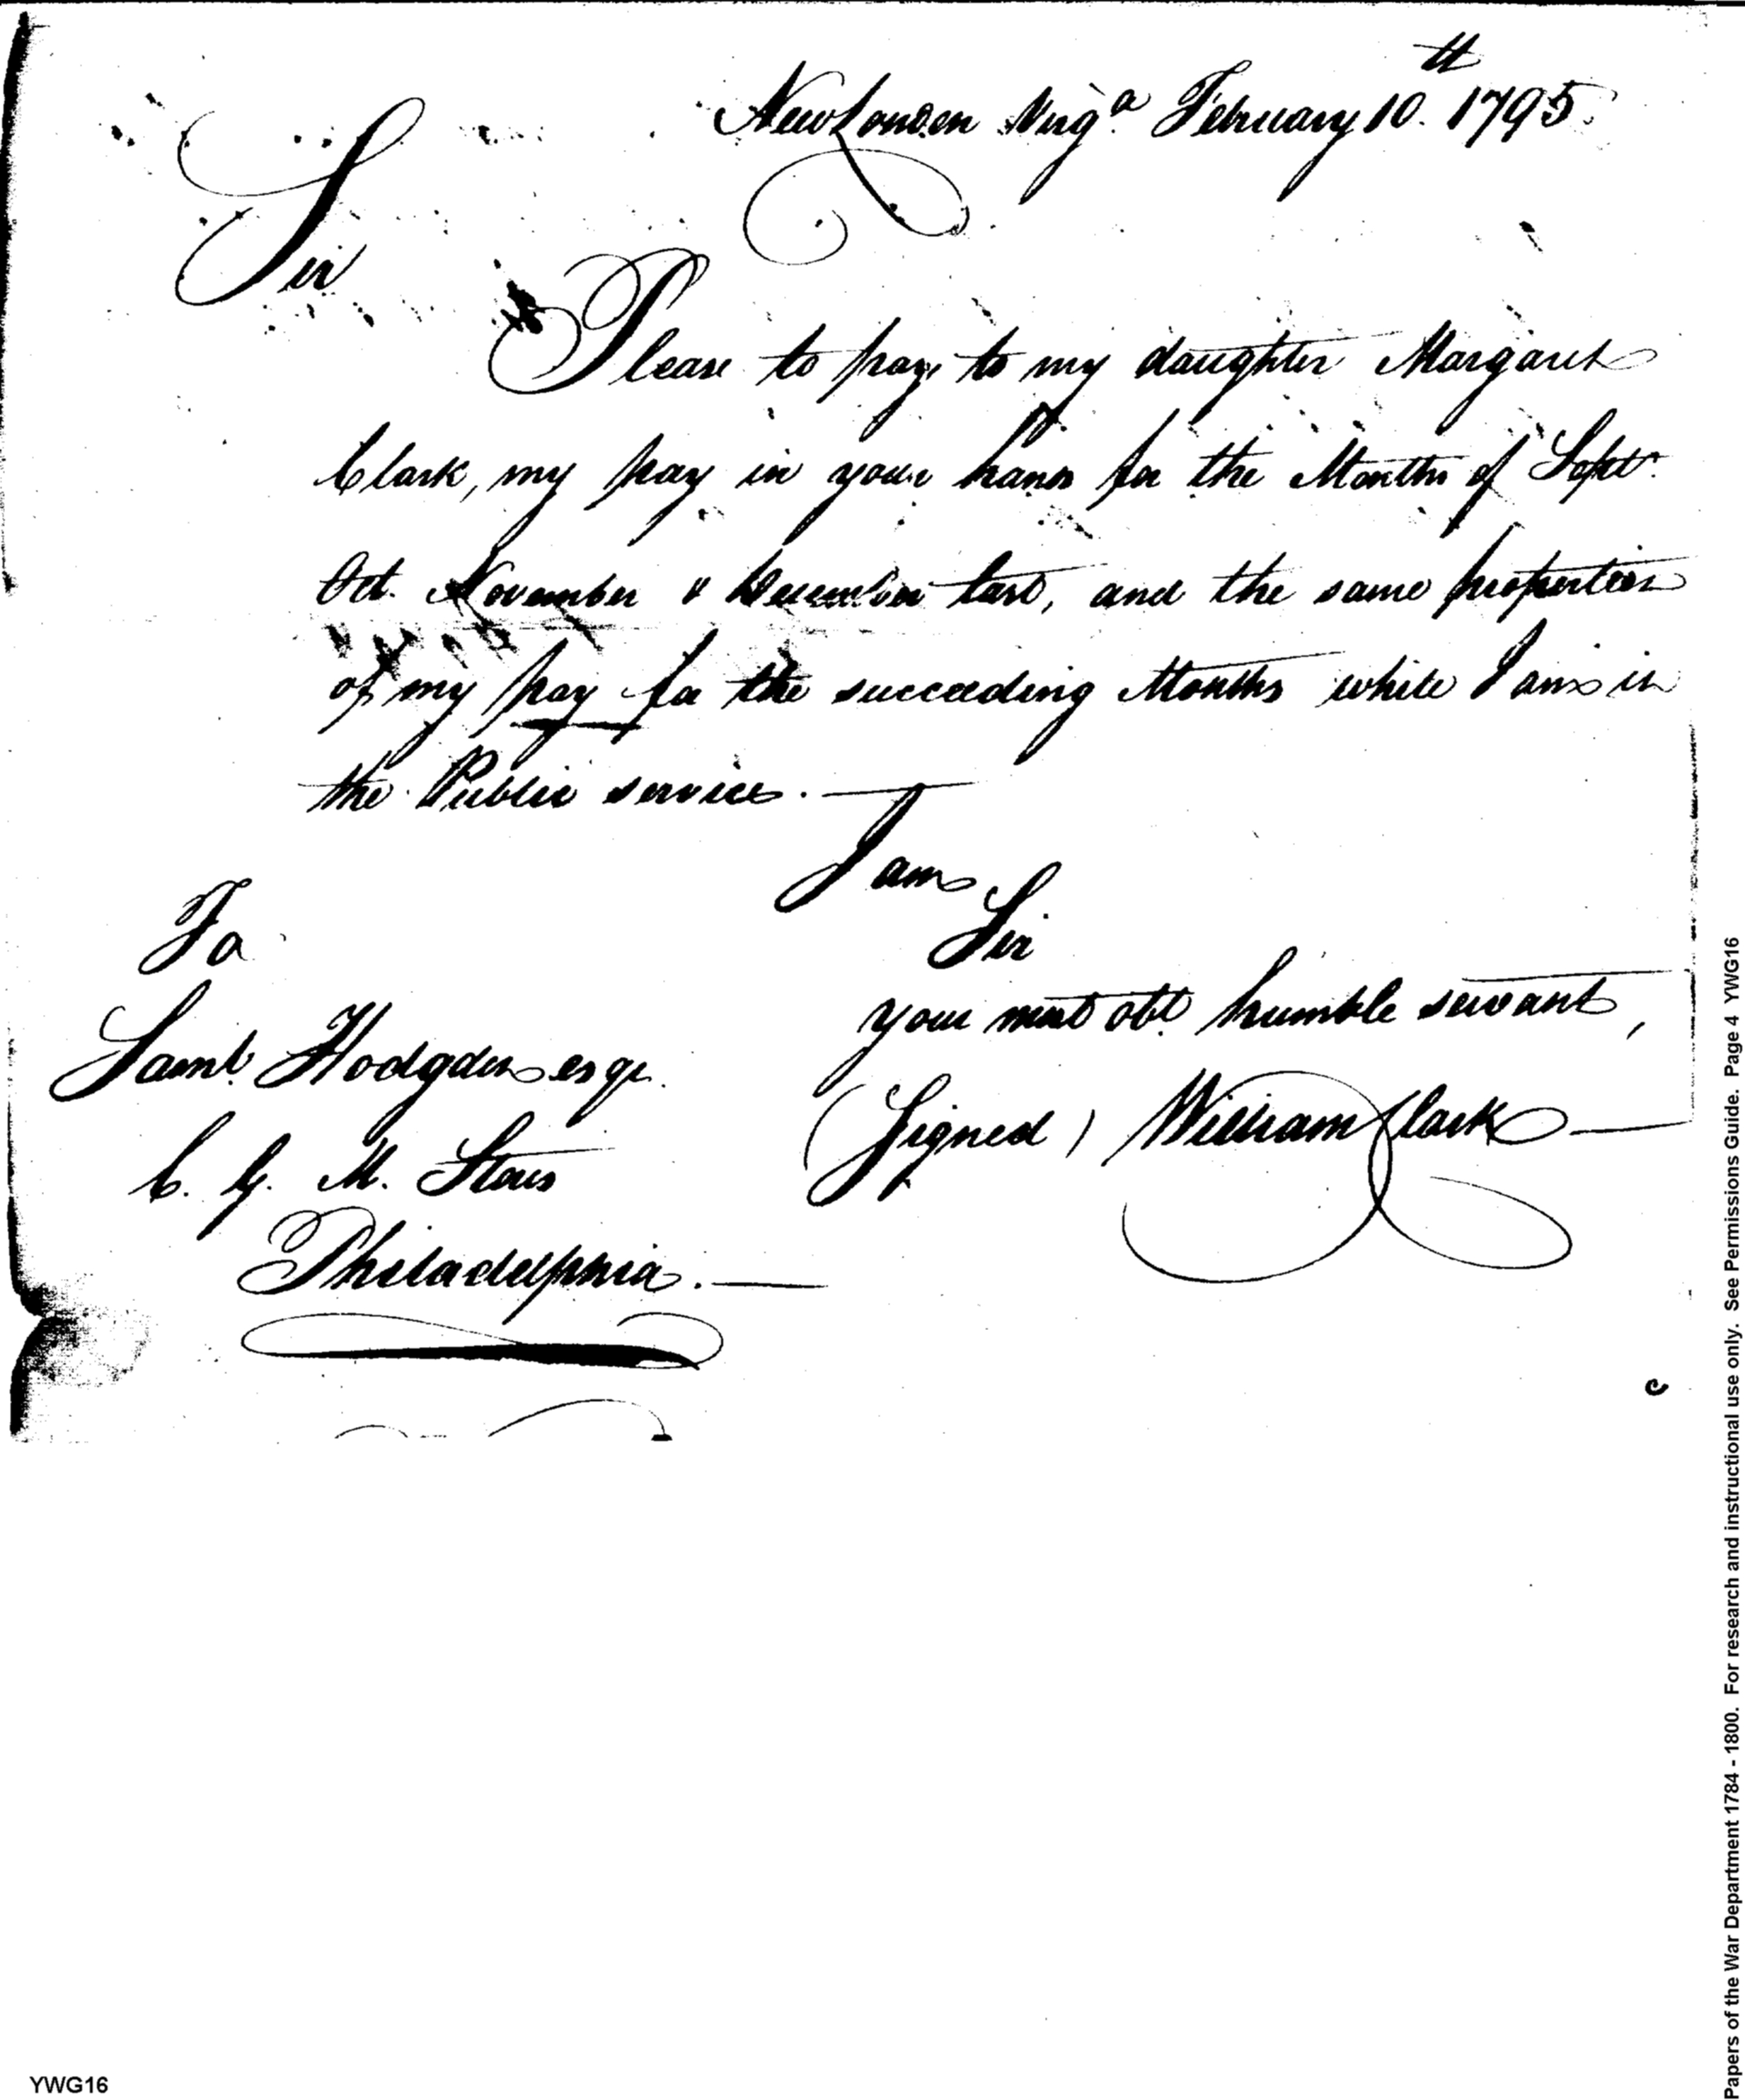 New London Virg.a February 10.th 1795.
Sir
Please to pay to my daughter Margaret
Clark, my pay in your hands for the Months of Septr.
Oct. November & December last, and the same proportion
of my pay for the succeeding Months while I am in
the Public service.
I am
Sir
your most obt. humble servant,
(Signed) William Clark
To
Saml. Hodgdon esqr.
C. G. M. Stores
Philadelphia.
Papers of the War Department 1784 - 1800. For research and instructional use only. See Permissions Guide. Page 4 YWG16
YWG16